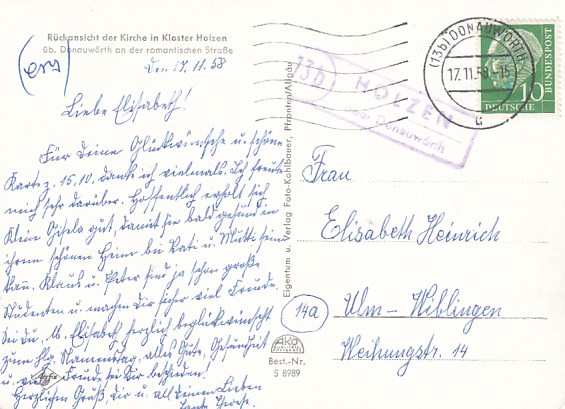 Rückansicht der Kirche in Kloster Holzen
üb. Donauwörth an der romantischen Straße
Den 17.11.58
Liebe Elisabeth!
Für Deine Glückwünsche u. schöne
Karte z. 15.10. dank ich vielmals. Ich freute
mich sehr darüber. Hoffentlich erholt sich
Klein Gisela gut, damit sie bald gesund in
ihrem schönen Heim bei Vati u. Mutti sein
kann. Klaus u. Peter sind ja schon große
Studenten u. machen Dir sicher viel Freude.
Sei Du, lb. Elisabeth herzlich beglückwünscht
zum hlg. Namenstag, alles Gute, Gesundheit
u. viel Freude sei Dir beschieden!
Herzlichen Gruß Dir u. all Deinen Lieben
Tante Therese.
Eigentum u. Verlag Foto-Kohlbauer, Pfronten/Allgäu
AKO
Best.-Nr.
S 8989
Agfa
13b
HOLZEN
über Donauwörth
(13b) DONAUWÖRTH
17.11.58.-15
a
DEUTSCHE BUNDESPOST
10
Frau
Elisabeth Heinrich
14a
Ulm-Wiblingen
Weihungstr. 14